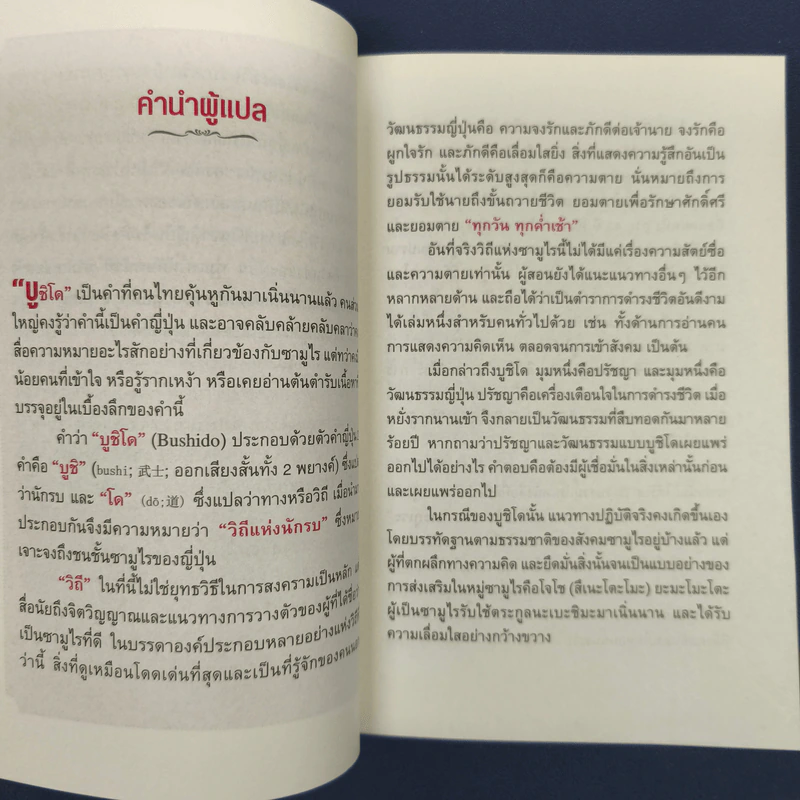 คำนำผู้แปล
“บูชิโด” เป็นคำที่คนไทยคุ้นหูกันมาเนิ่นนานแล้ว คนส่วน
ใหญ่คงรู้ว่าคำนี้เป็นคำญี่ปุ่น และอาจคลับคล้ายคลับคลาว่า
สื่อความหมายอะไรสักอย่างที่เกี่ยวข้องกับซามูไร แต่ทว่าคง
น้อยคนที่เข้าใจ หรือรู้รากเหง้า หรือเคยอ่านต้นตำรับเนื้อหา
บรรจุอยู่ในเบื้องลึกของคำนี้
คำว่า “บูชิโด” (Bushido) ประกอบด้วยตัวคำญี่ปุ่น
คำคือ “บูชิ” (bushi; 武士; ออกเสียงสั้นทั้ง 2 พยางค์) ซึ่งแปล
ว่านักรบ และ “โด” (dō; 道) ซึ่งแปลว่าทางหรือวิถี เมื่อนำมา
ประกอบกันจึงมีความหมายว่า “วิถีแห่งนักรบ” ซึ่งหมาย
เจาะจงถึงชนชั้นซามูไรของญี่ปุ่น
“วิถี” ในที่นี้ไม่ใช่ยุทธวิธีในการสงครามเป็นหลัก
สื่อนัยถึงจิตวิญญาณและแนวทางการวางตัวของผู้ที่ได้ชื่อ
เป็นซามูไรที่ดี ในบรรดาองค์ประกอบหลายอย่างแห่งวิถี
ว่านี้ สิ่งที่ดูเหมือนโดดเด่นที่สุดและเป็นที่รู้จักของคน
วัฒนธรรมญี่ปุ่นคือ ความจงรักและภักดีต่อเจ้านาย จงรักคือ
ผูกใจรัก และภักดีคือเลื่อมใสยิ่ง สิ่งที่แสดงความรู้สึกอันเป็น
รูปธรรมนั้นได้ระดับสูงสุดก็คือความตาย นั่นหมายถึงการ
ยอมรับใช้นายถึงขั้นถวายชีวิต ยอมตายเพื่อรักษาศักดิ์ศรี
และยอมตาย “ทุกวัน ทุกค่ำเช้า”
อันที่จริงวิถีแห่งซามูไรนี้ไม่ได้มีแค่เรื่องความสัตย์ซื่อ
และความตายเท่านั้น ผู้สอนยังได้แนะแนวทางอื่นๆ ไว้อีก
หลากหลายด้าน และถือได้ว่าเป็นตำราการดำรงชีวิตอันดีงาม
ได้เล่มหนึ่งสำหรับคนทั่วไปด้วย เช่น ทั้งด้านการอ่านคน
การแสดงความคิดเห็น ตลอดจนการเข้าสังคม เป็นต้น
เมื่อกล่าวถึงบูชิโด มุมหนึ่งคือปรัชญา และมุมหนึ่งคือ
วัฒนธรรมญี่ปุ่น ปรัชญาคือเครื่องเตือนใจในการดำรงชีวิต เมื่อ
หยั่งรากนานเข้า จึงกลายเป็นวัฒนธรรมที่สืบทอดกันมาหลาย
ร้อยปี หากถามว่าปรัชญาและวัฒนธรรมแบบบูชิโดเผยแพร่
ออกไปได้อย่างไร คำตอบคือต้องมีผู้เชื่อมั่นในสิ่งเหล่านั้นก่อน
และเผยแพร่ออกไป
ในกรณีของบูชิโดนั้น แนวทางปฏิบัติจริงคงเกิดขึ้นเอง
โดยบรรทัดฐานตามธรรมชาติของสังคมซามูไรอยู่บ้างแล้ว แต่
ผู้ที่ตกผลึกทางความคิด และยึดมั่นสิ่งนั้นจนเป็นแบบอย่างของ
การส่งเสริมในหมู่ซามูไรคือโจโช (สึเนะโตะโมะ) ยะมะโมะโตะ
ผู้เป็นซามูไรรับใช้ตระกูลนะเบะชิมะมาเนิ่นนาน และได้รับ
ความเลื่อมใสอย่างกว้างขวาง